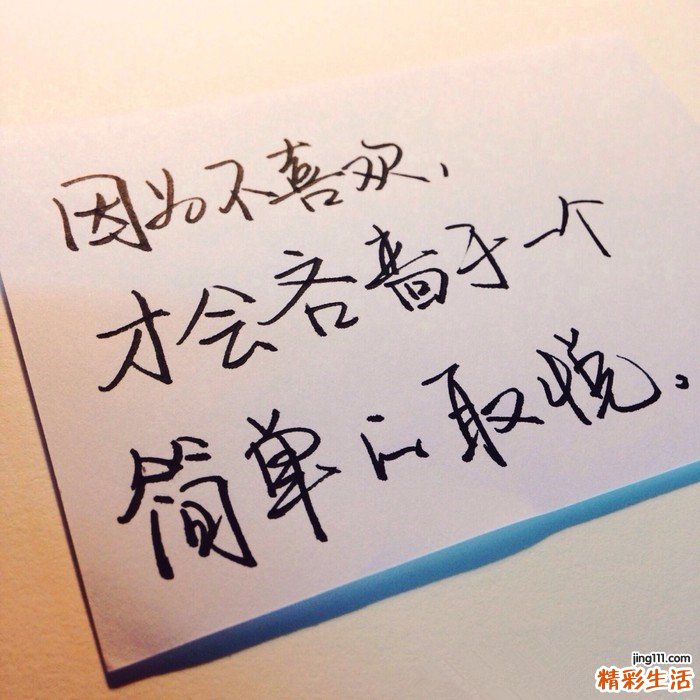 因为不喜欢，
才会吝啬于一个
简单的取悦。
jing111.com
精彩生活